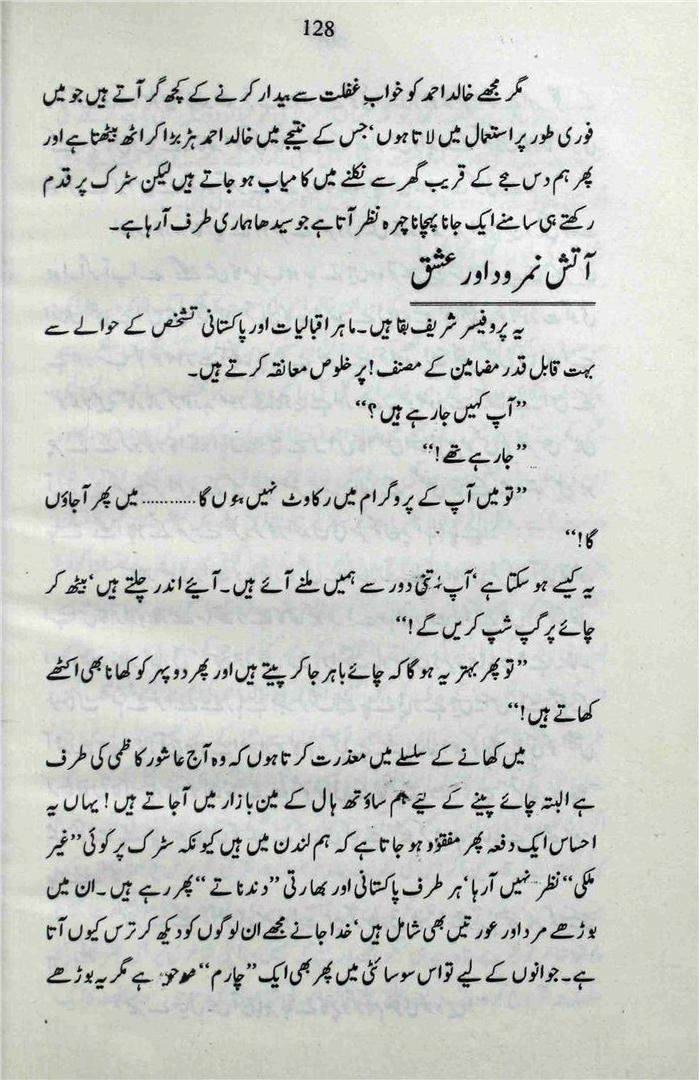 128
مگر مجھے خالد احمد کو خوابِ غفلت سے بیدار کرنے کے کچھ گر آتے ہیں جو میں
فوری طور پر استعمال میں لاتا ہوں‘ جس کے نتیجے میں خالد احمد ہڑبڑا کر اٹھ بیٹھتا ہے اور
پھر ہم دس بجے کے قریب گھر سے نکلنے میں کامیاب ہو جاتے ہیں لیکن سڑک پر قدم
رکھتے ہی سامنے ایک جانا پہچانا چہرہ نظر آتا ہے جو سیدھا ہماری طرف آ رہا ہے۔
آتش نمرود اور عشق
یہ پروفیسر شریف بقا ہیں۔ ماہر اقبالیات اور پاکستانی تشخص کے حوالے سے
بہت قابل قدر مضامین کے مصنف! پر خلوص معانقہ کرتے ہیں۔
”آپ کہیں جا رہے ہیں؟“
”جا رہے تھے!“
”تو میں آپ کے پروگرام میں رکاوٹ نہیں ہوں گا ........... میں پھر آ جاؤں
گا!“
یہ کیسے ہو سکتا ہے‘ آپ اتنی دور سے ہمیں ملنے آئے ہیں۔ آیئے اندر چلتے ہیں‘ بیٹھ کر
چائے پر گپ شپ کریں گے!“
”تو پھر بہتر یہ ہو گا کہ چائے باہر جا کر پیتے ہیں اور پھر دوپہر کو کھانا بھی اکٹھے
کھاتے ہیں!“
میں کھانے کے سلسلے میں معذرت کرتا ہوں کہ وہ آج عاشور کاظمی کی طرف
ہے البتہ چائے پینے کے لیئے ہم ساؤتھ ہال کے مین بازار میں آ جاتے ہیں! یہاں یہ
احساس ایک دفعہ پھر مفقود ہو جاتا ہے کہ ہم لندن میں ہیں کیونکہ سڑک پر کوئی ”غیر
ملکی“ نظر نہیں آ رہا‘ ہر طرف پاکستانی اور بھارتی ”دندناتے“ پھر رہے ہیں۔ ان میں
بوڑھے مرد اور عورتیں بھی شامل ہیں‘ خدا جانے مجھے ان لوگوں کو دیکھ کر ترس کیوں آتا
ہے۔ جوانوں کے لیے تو اس سوسائٹی میں پھر بھی ایک ”چارم“ ہے مگر یہ بوڑھے